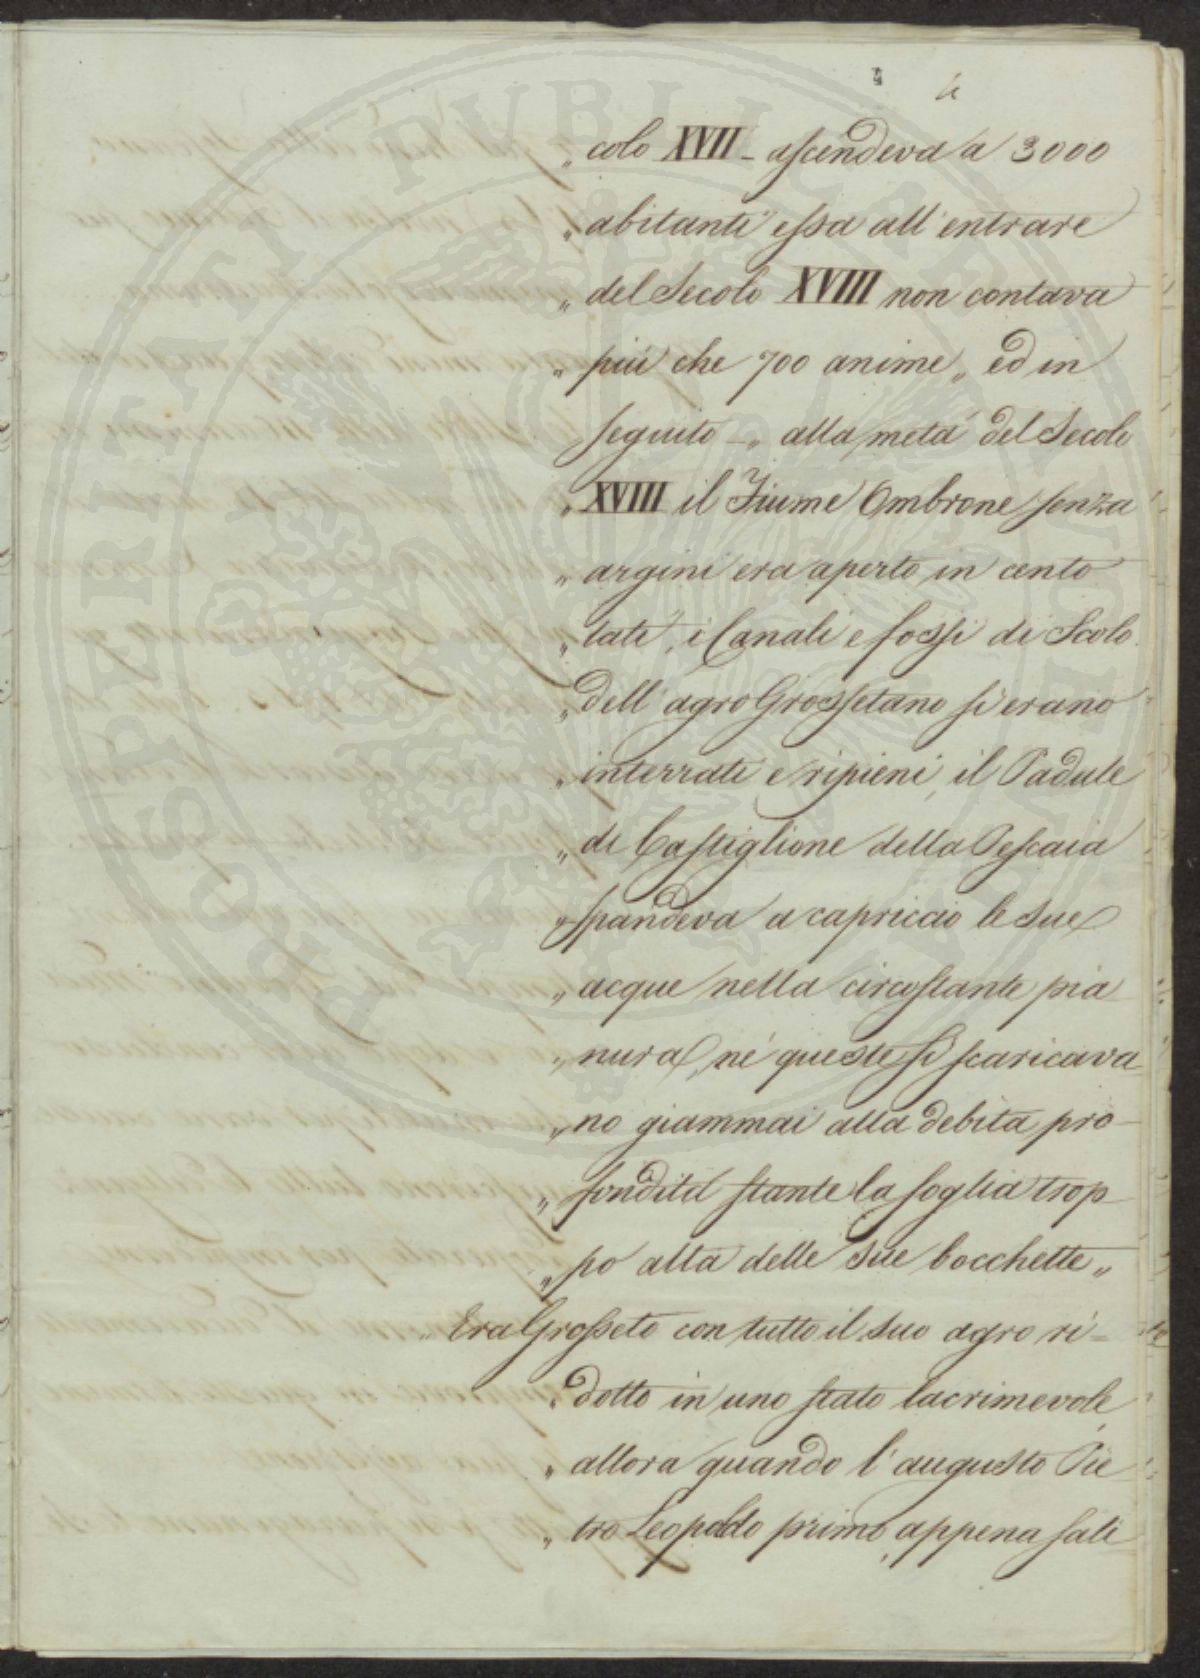 4 4
„ colo XVII - ascendeva a 3000
„ abitanti essa all'entrare
„ del Secolo XVIII non contava
„ più che 700 anime „ ed in
seguito - „ alla metà del Secolo
„ XVIII il Fiume Ombrone senza
„ argini era aperto in cento
„ lati, i Canali e fossi di Scolo
„ dell'agro Grossetano si erano
„ interrati e ripieni, il Padule
„ di Castiglione della Pescaia
„ spandeva a capriccio le sue
„ acque nella circostante pia
„ nura, nè queste si scaricava
„ no giammai alla debita pro-
„ fondità stante la soglia trop
„ po alta delle sue bocchette „
„ Era Grosseto con tutto il suo agro ri=
„ dotto in uno stato lacrimevole,
„ allora quando l'augusto Pie
„ tro Leopoldo primo, appena salì
PROSPERITATI PUBLICAE